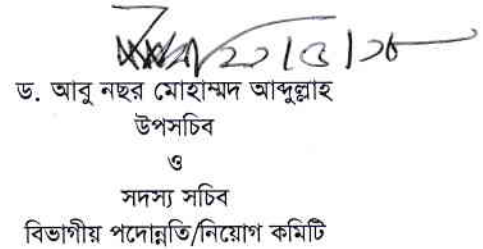 ড. আবু নছর মোহাম্মদ আব্দুল্লাহ
উপসচিব
ও
সদস্য সচিব
বিভাগীয় পদোন্নতি/নিয়োগ কমিটি